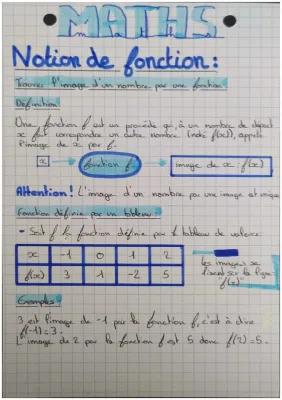 MATHS
Notion de fonction :
Trouver l'image d'un nombre par une fonction
Définition
Une fonction f est un procédé qui, à un nombre de départ
x fait correspondre un autre nombre (noté f(x)), appelé
l'image de x par f.
x fonction f image de x f(x)
Attention ! L'image d'un nombre par une image est unique
Fonction définie par un tableau :
- Soit f la fonction définie par le tableau de valeurs
x -1 0 1 2
f(x) 3 1 -2 5
Les images se
lisent sur la ligne
"f(x)"
Exemples :
3 est l'image de -1 par la fonction f, c'est à dire
f(-1)=3.
L'image de 2 par la fonction f est 5 donc f(2)=5.